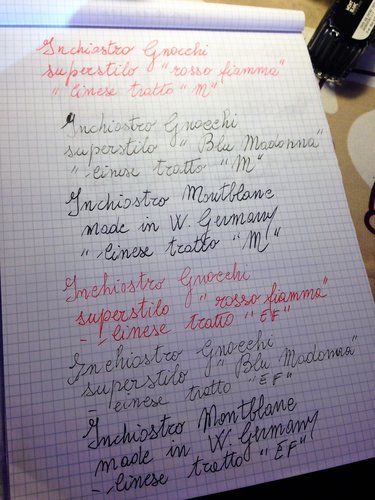 Inchiostro Gnocchi
superstilo "rosso fiamma"
" Cinese tratto "M"
Inchiostro Gnocchi
superstilo "Blu Madonna"
" Cinese tratto "M"
Inchiostro Montblanc
made in W. Germany
" Cinese tratto "M"
Inchiostro Gnocchi
superstilo "rosso fiamma"
- Cinese tratto "EF"
Inchiostro Gnocchi
superstilo "Blu Madonna"
- Cinese tratto "EF"
Inchiostro Montblanc
made in W. Germany
- Cinese tratto "EF"